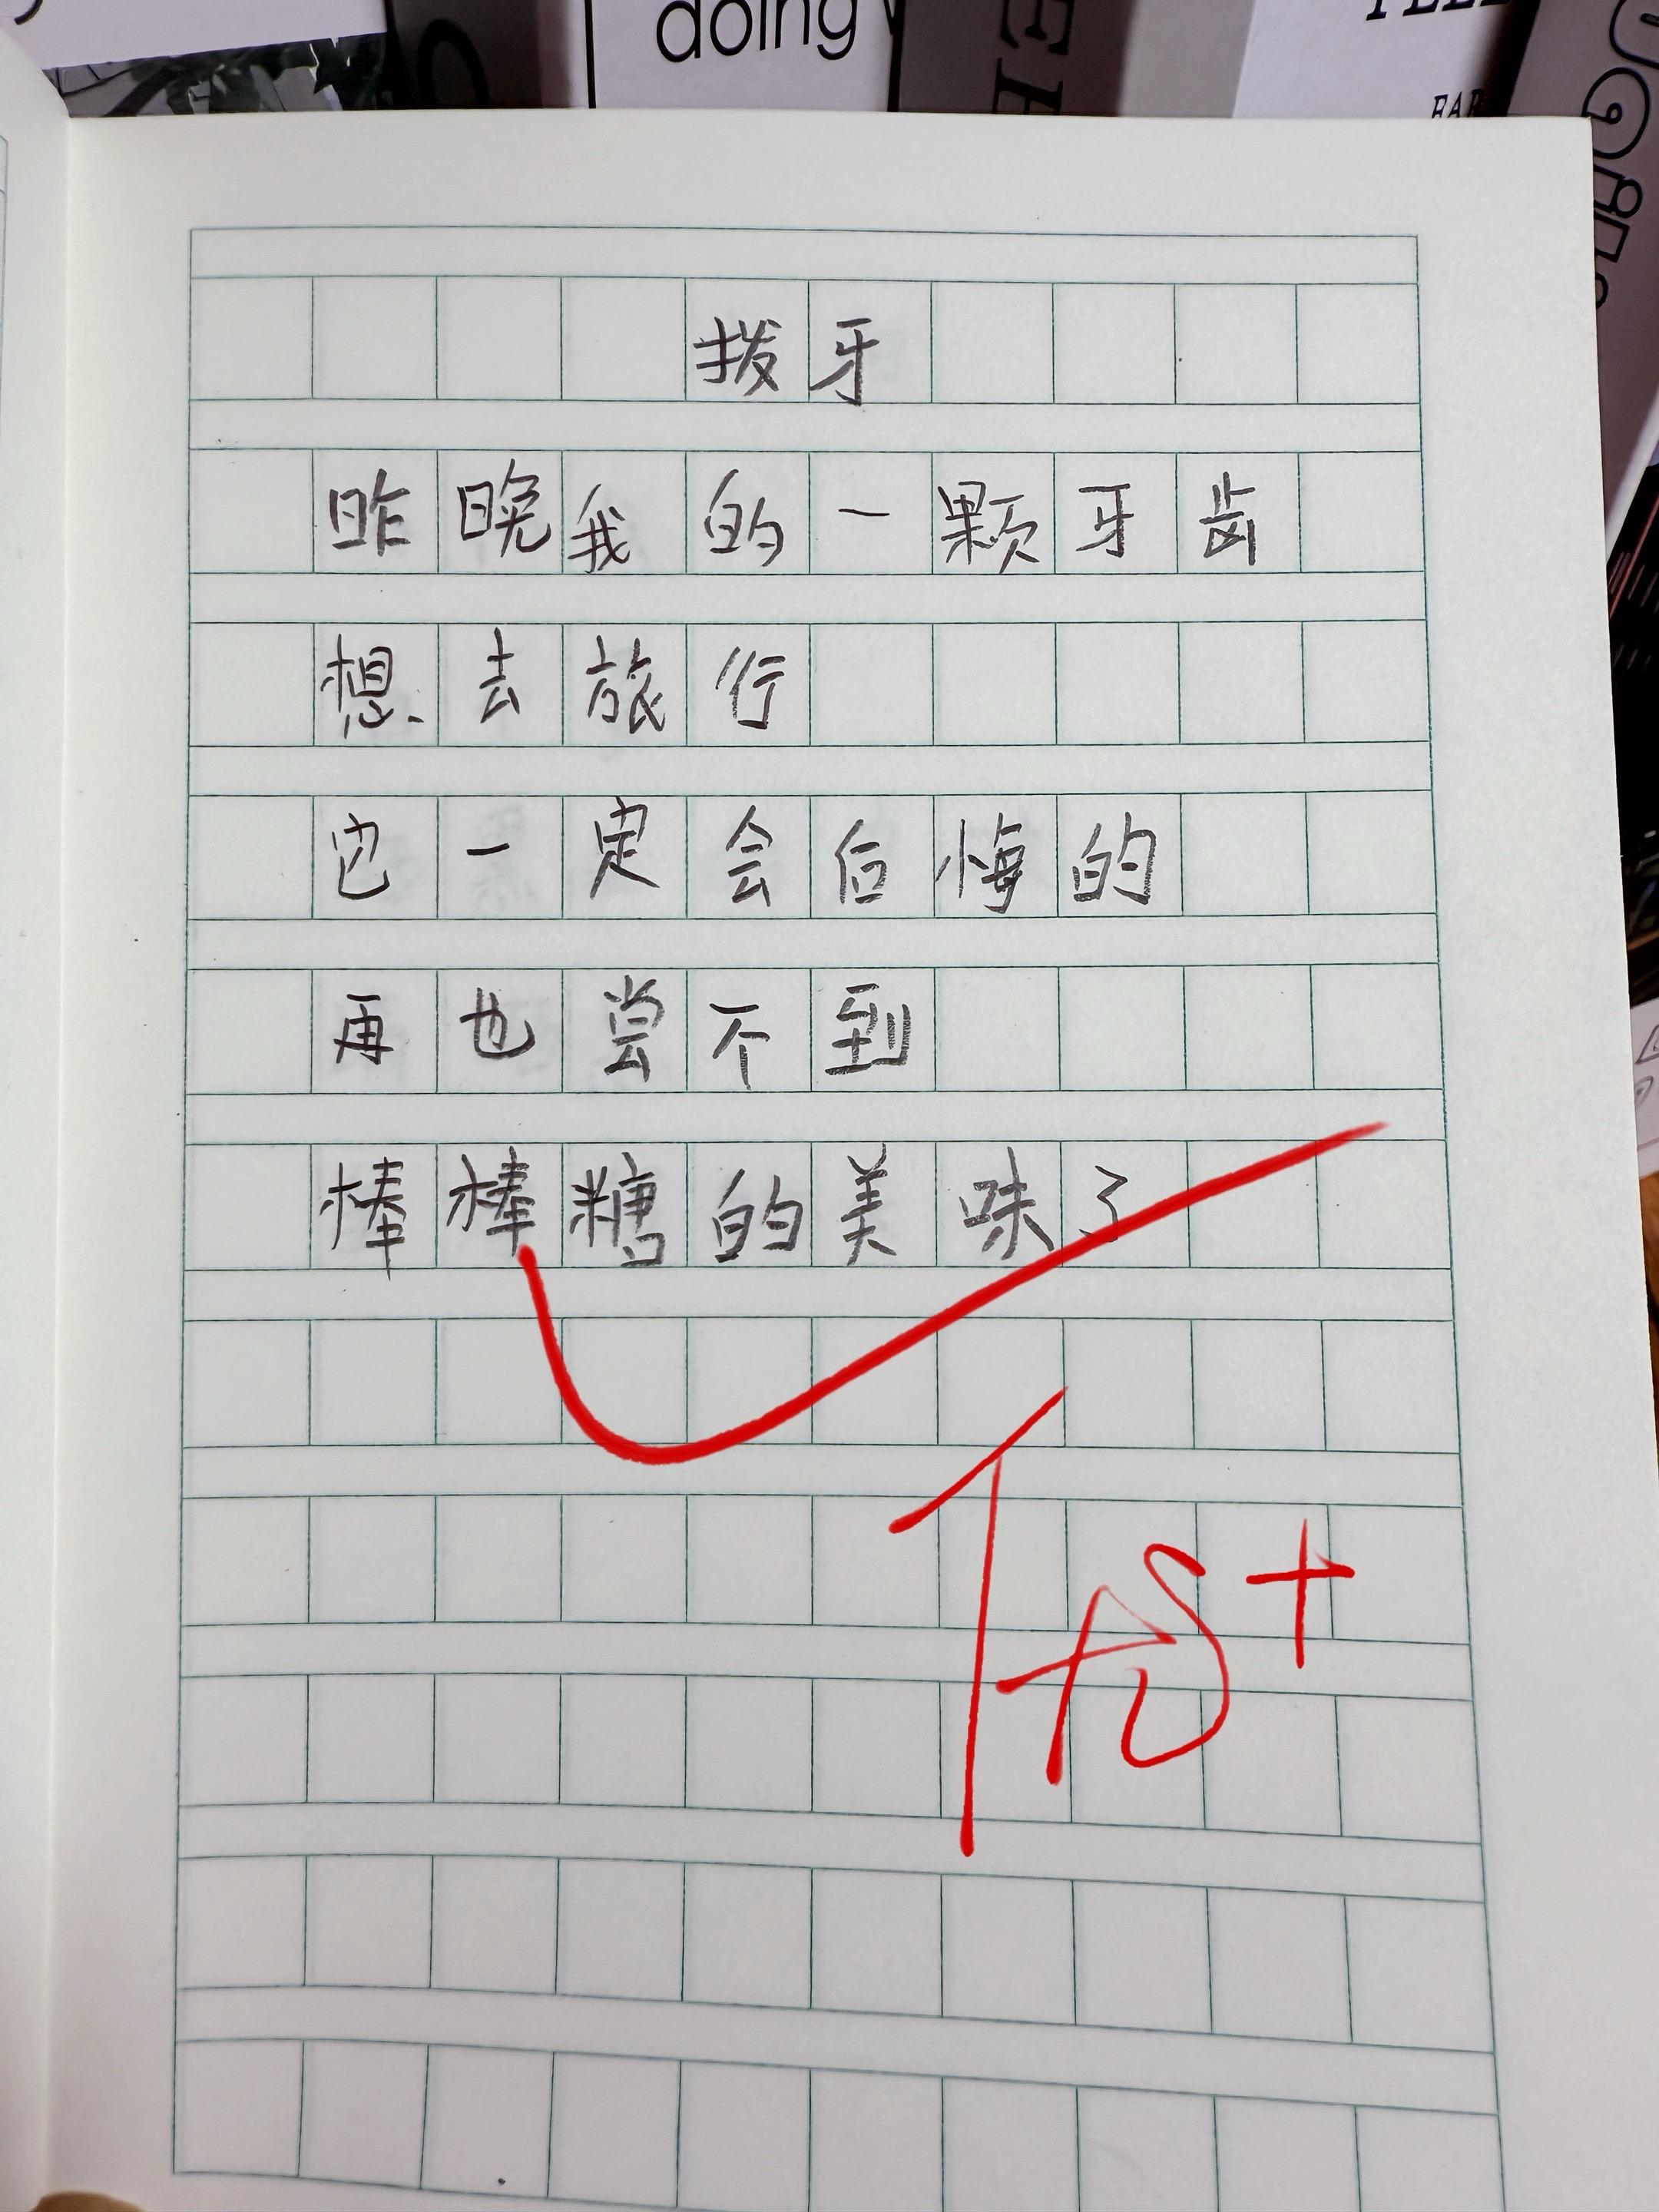 doing
EH
拨牙
昨晚我的一颗牙齿
想去旅行
它一定会后悔的
再也尝不到
棒棒糖的美味了
优+